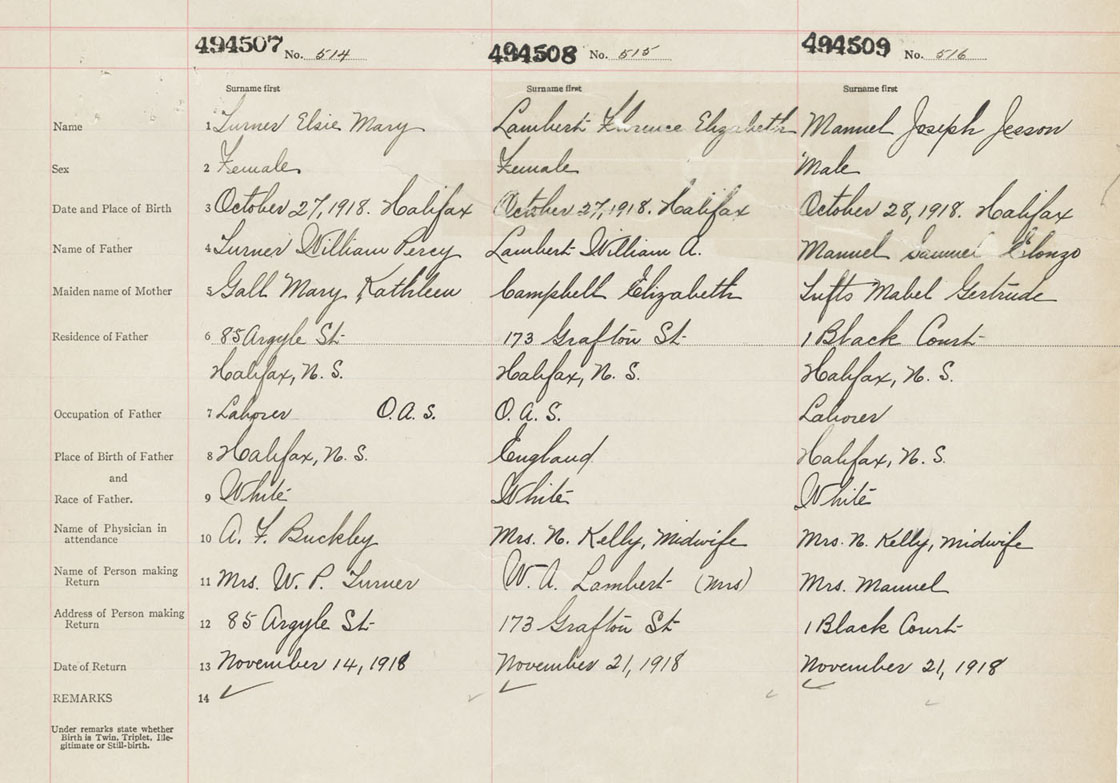 494507 No. 514 494508 No. 515 494509 No. 516
Surname first Surname first Surname first
Name 1 Turner Elsie Mary Lambert Florence Elizabeth Manuel Joseph Jesson
Sex 2 Female Female Male
Date and Place of Birth 3 October 27, 1918. Halifax October 27, 1918. Halifax October 28, 1918. Halifax
Name of Father 4 Turner William Percy Lambert William A. Manuel Samuel Alonzo
Maiden name of Mother 5 Gall Mary Kathleen Campbell Elizabeth Tufts Mabel Gertrude
Residence of Father 6 85 Argyle St 173 Grafton St 1 Black Court
Halifax, N. S. Halifax, N. S. Halifax, N. S.
Occupation of Father 7 Laborer O.A.S. O.A.S. Laborer
Place of Birth of Father 8 Halifax, N. S. England Halifax, N. S.
and
Race of Father. 9 White White White
Name of Physician in
attendance 10 A. F. Buckley Mrs. N. Kelly, Midwife Mrs. N. Kelly, Midwife
Name of Person making
Return 11 Mrs. W. P. Turner W. A. Lambert (Mrs) Mrs. Manuel
Address of Person making
Return 12 85 Argyle St 173 Grafton St 1 Black Court
Date of Return 13 November 14, 1918 November 21, 1918 November 21, 1918
REMARKS 14
Under remarks state whether
Birth is Twin, Triplet, Ille-
gitimate or Still-birth.